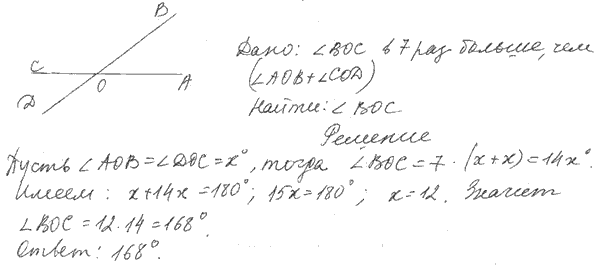 B
Дано: ∠BOC в 7 раз больше, чем
C O A
(∠AOB+∠COD)
D
Найти: ∠BOC
Решение
Пусть ∠AOB=∠DOC=x°, тогда ∠BOC=7·(x+x)=14x°.
Имеем: x+14x=180°; 15x=180°; x=12. Значит
∠BOC=12·14=168°.
Ответ: 168°.